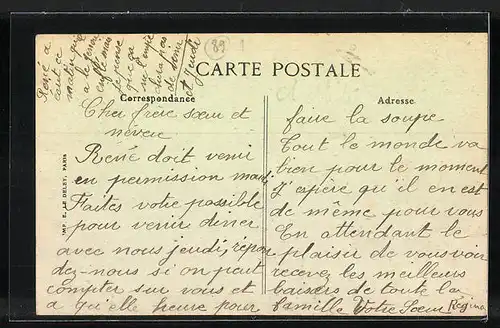 René a
89
CARTE POSTALE
Correspondance
Adresse
IMP. E. LE DELEY, PARIS
Cher frère sœur et
neveu
René doit venir
en permission mardi
Faites votre possible
pour venir diner
avec nous jeudi, répon
dez-nous si on peut
compter sur vous et
a qu'elle heure pour
faire la soupe
Tout le monde va
bien pour le moment
J'espère qu'il en est
de même pour vous
En attendant le
plaisir de vous voir
recevez les meilleurs
baisers de toute la
famille Votre Sœur Régina